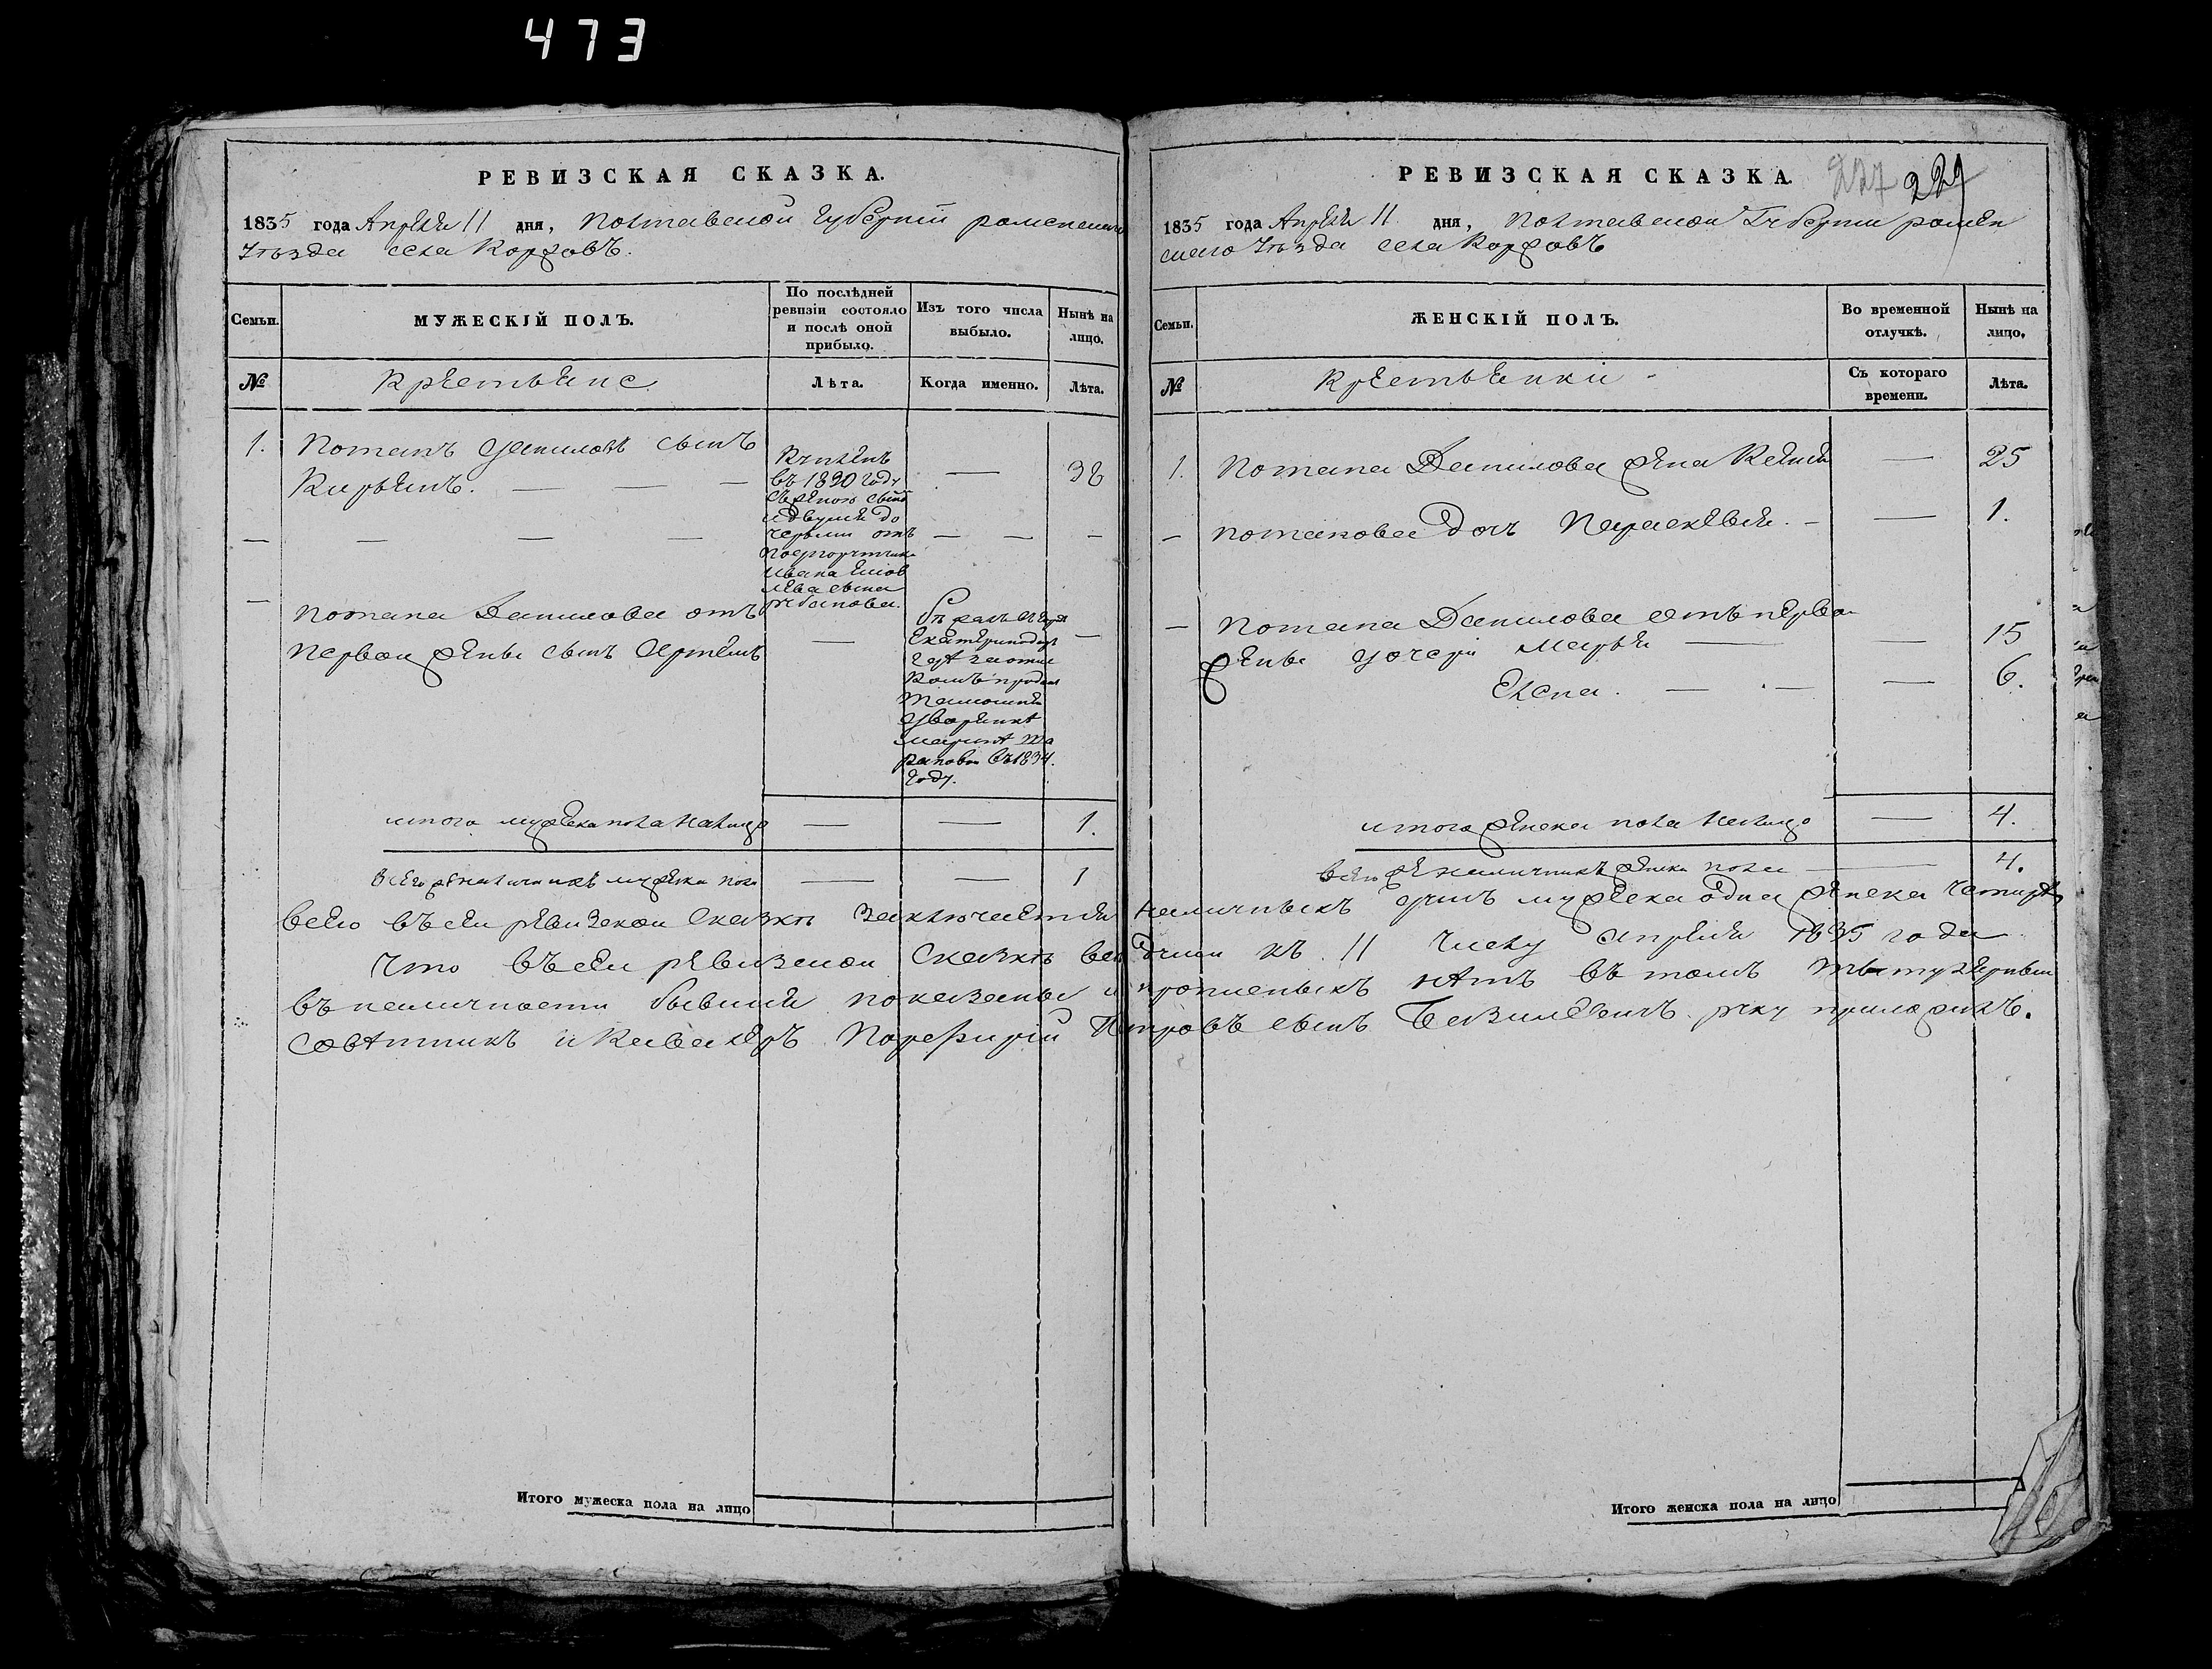 473
РЕВИЗСКАЯ СКАЗКА.
1835 года Апреля 11 дня, Полтавской губерній роменскаго
уѣзда села Коржовъ.
Семьи.
МУЖЕСКІЙ ПОЛЪ.
По послѣдней ревизіи состояло и послѣ оной прибыло.
Изъ того числа выбыло.
Нынѣ на лицо.
№
Крестьяне
Лѣта.
Когда именно.
Лѣта.
1. Потапъ Даниловъ сынъ
Кирьянъ. — — —
Купленъ
въ 1830 году
съ женою
и двумя до
черьми отъ
Ивана
сына
— — 38
— — — — — — —
— Потапа Данилова отъ
первой жены сынъ Артемъ —
Екатеринодар
продан
дворянкѣ
въ 1834.
году.
—
итого мужеска пола налицо — — 1.
всего же наличныхъ мужеска пола — — 1
РЕВИЗСКАЯ СКАЗКА.
227 229
1835 года Апреля 11 дня, Полтавской Губерни ромен
скаго уѣзда села Коржовъ
Семьи.
ЖЕНСКІЙ ПОЛЪ.
Во временной отлучкѣ.
Нынѣ на лицо.
№
Крестьянки
Съ котораго времени.
Лѣта.
1. Потапа Данилова жена — 25
— Потапова дочь Параскевия — — 1.
— Потапа Данилова отъ перво
жены дочери Марья — — 15
Елена — — — 6.
итого женска пола налицо — 4.
всего же наличныхъ женска пола — 4.
всего въ сей ревизской сказкѣ заключается наличныхъ душъ мужеска одна женска четыре
Что въ сей ревизской сказкѣ все души къ 11 числу апреля 1835 года
въ наличности бывшия показаны и прописныхъ нѣтъ въ томъ титулярный
совѣтникъ и кавалеръ Порфирій Петровъ сынъ Базилевичъ руку приложилъ.
Итого мужеска пола на лицо
Итого женска пола на лицо